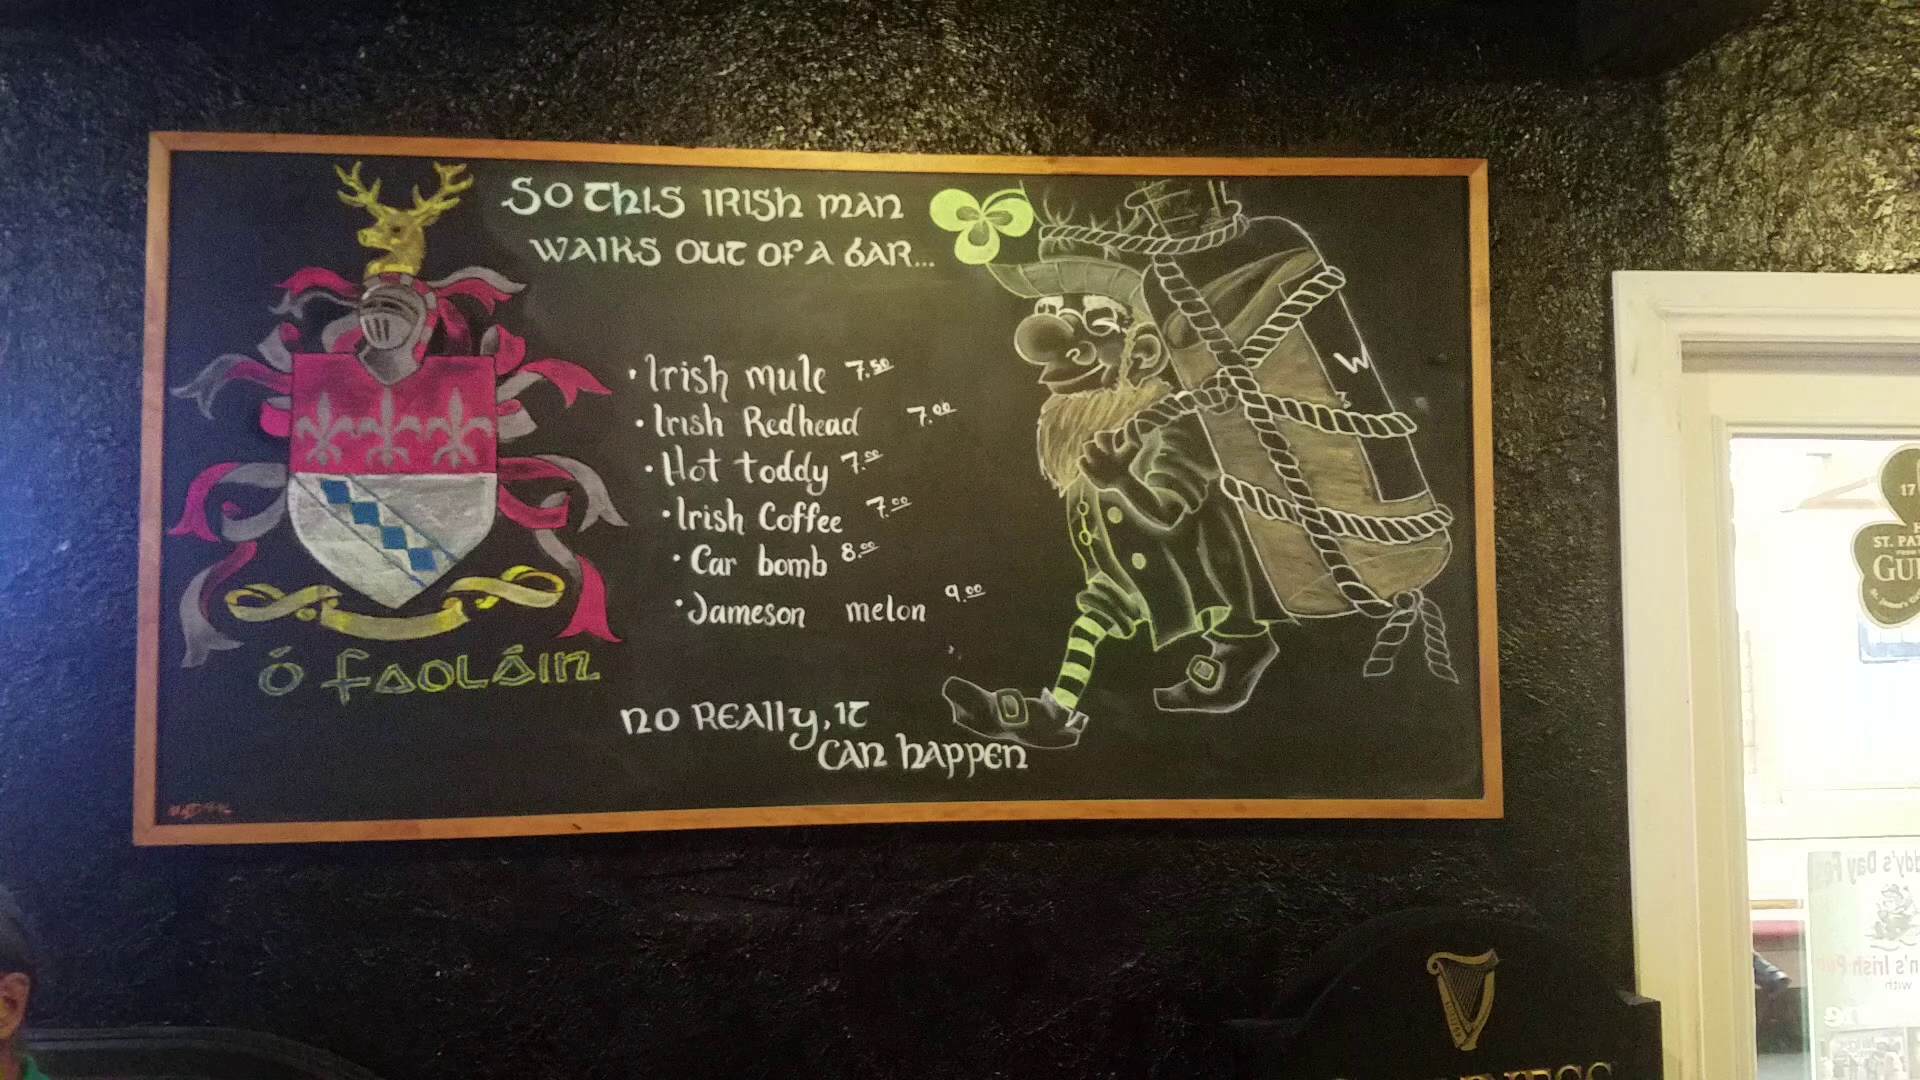 So this Irish man
walks out of a bar...
• Irish mule 7.50
• Irish Redhead 7.00
• Hot toddy 7.00
• Irish Coffee 7.00
• Car bomb 8.00
• Jameson melon 9.00
Ó Faoláin
No Really, it
can happen
W
17
ST. PAT
GUI